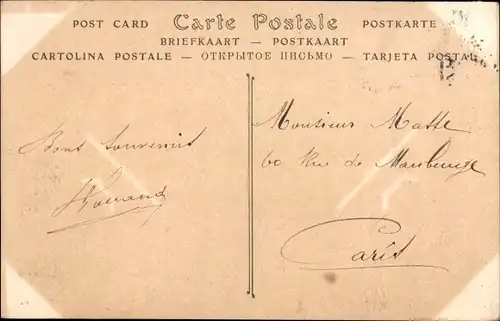 POST CARD Carte Postale POSTKARTE
BRIEFKAART — POSTKAART
CARTOLINA POSTALE — ОТКРЫТОЕ ПИСЬМО — TARJETA POSTAL
Bons Souvenirs
Monsieur Matte
60 Rue de Maubeuge
Paris